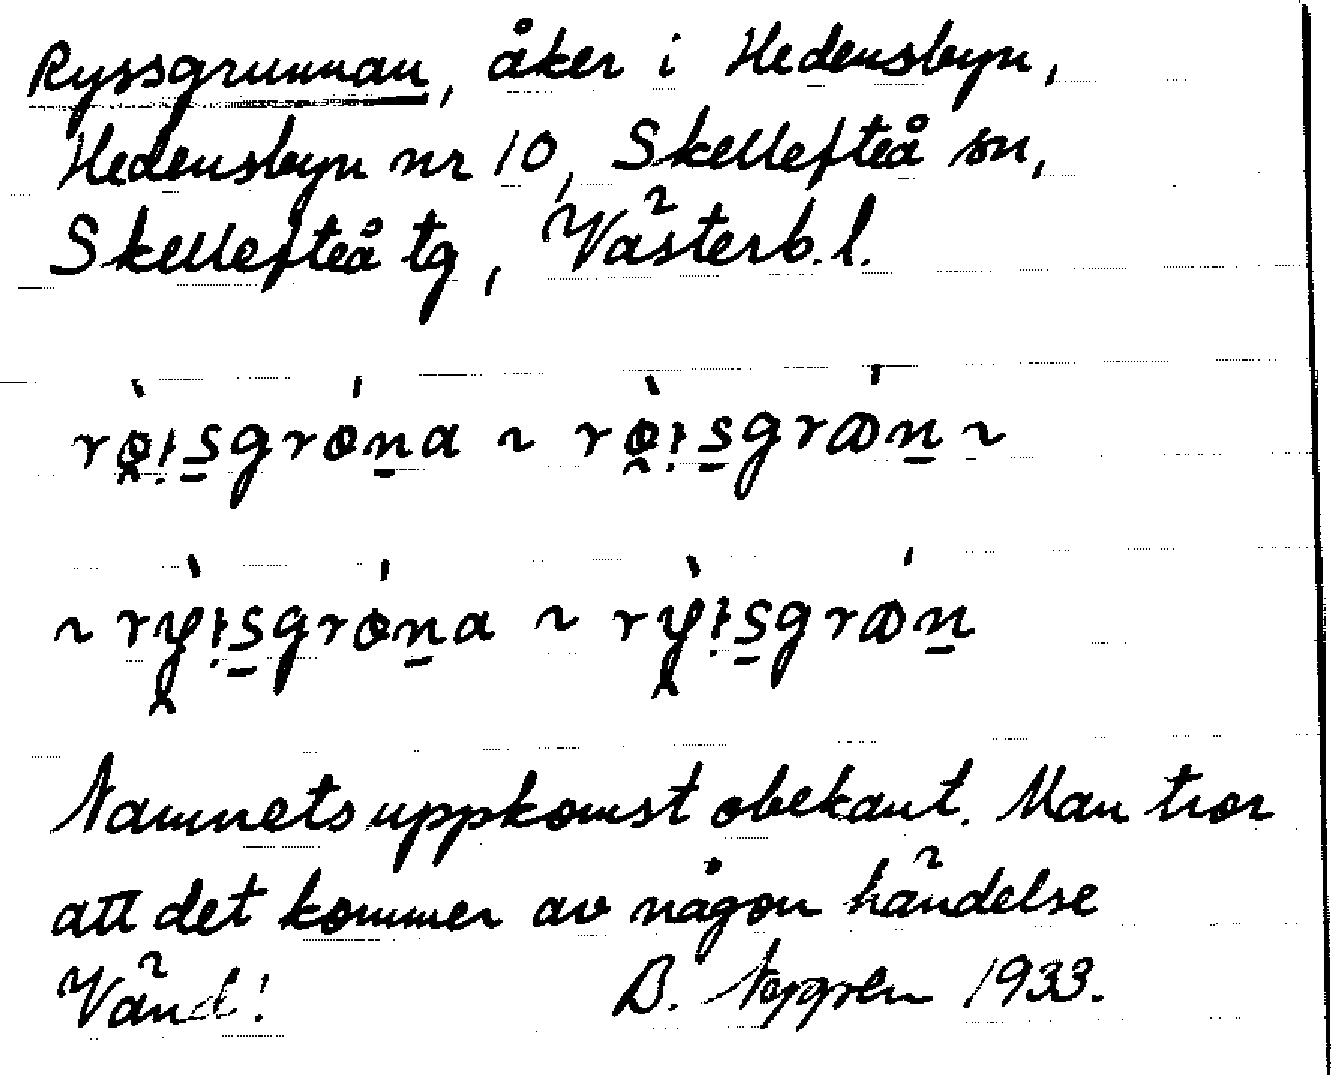 Ryssgrunnan, åker i Hedensbyn,
Hedensbyn nr 10, Skellefteå sn,
Skellefteå tg, Västerb. l.
~
~ ~
Namnets uppkomst obekant. Man tror
att det kommer av någon händelse
Vänd! B. Nygren 1933.